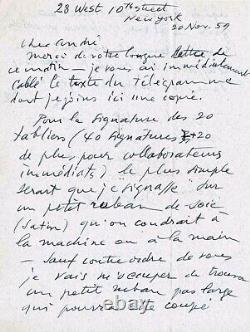 28 West 10th Street
New York
20 Nov. 59
Cher André
Merci de votre longue lettre de
ce matin — je vous ai immédiatement
cablé le texte du télégramme
dont je joins ici une copie.
Pour la signature des 20
tabliers (40 signatures + 20
de plus pour collaborateurs
immédiats) le plus simple
serait que je signasse sur
un petit ruban de soie
(satin) qu'on coudrait à
la machine ou à la main
— sauf contre ordre de vous
je vais m'occuper de trouver
un petit ruban pas large
qui pourra être coupé